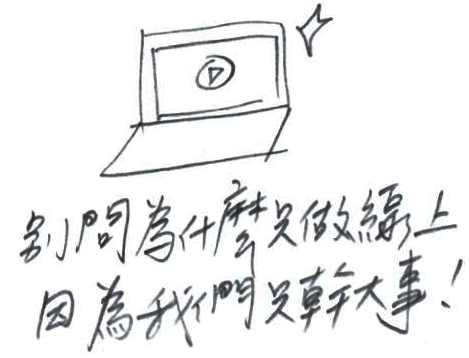 別問為什麼只做線上
因為我們只幹大事!